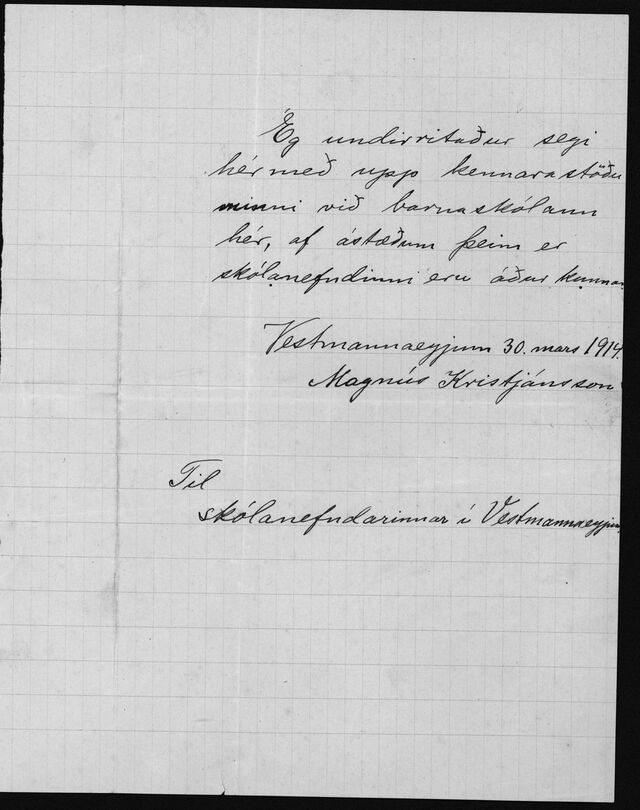 Ég undirritaður segi
hérmeð upp kennarastöðu
minni við barnaskólann
hér, af ástæðum þeim er
skólanefndinni eru áður kunnar.
Vestmannaeyjum 30. mars 1914.
Magnús Kristjánsson
Til
skólanefndarinnar í Vestmannaeyjum.